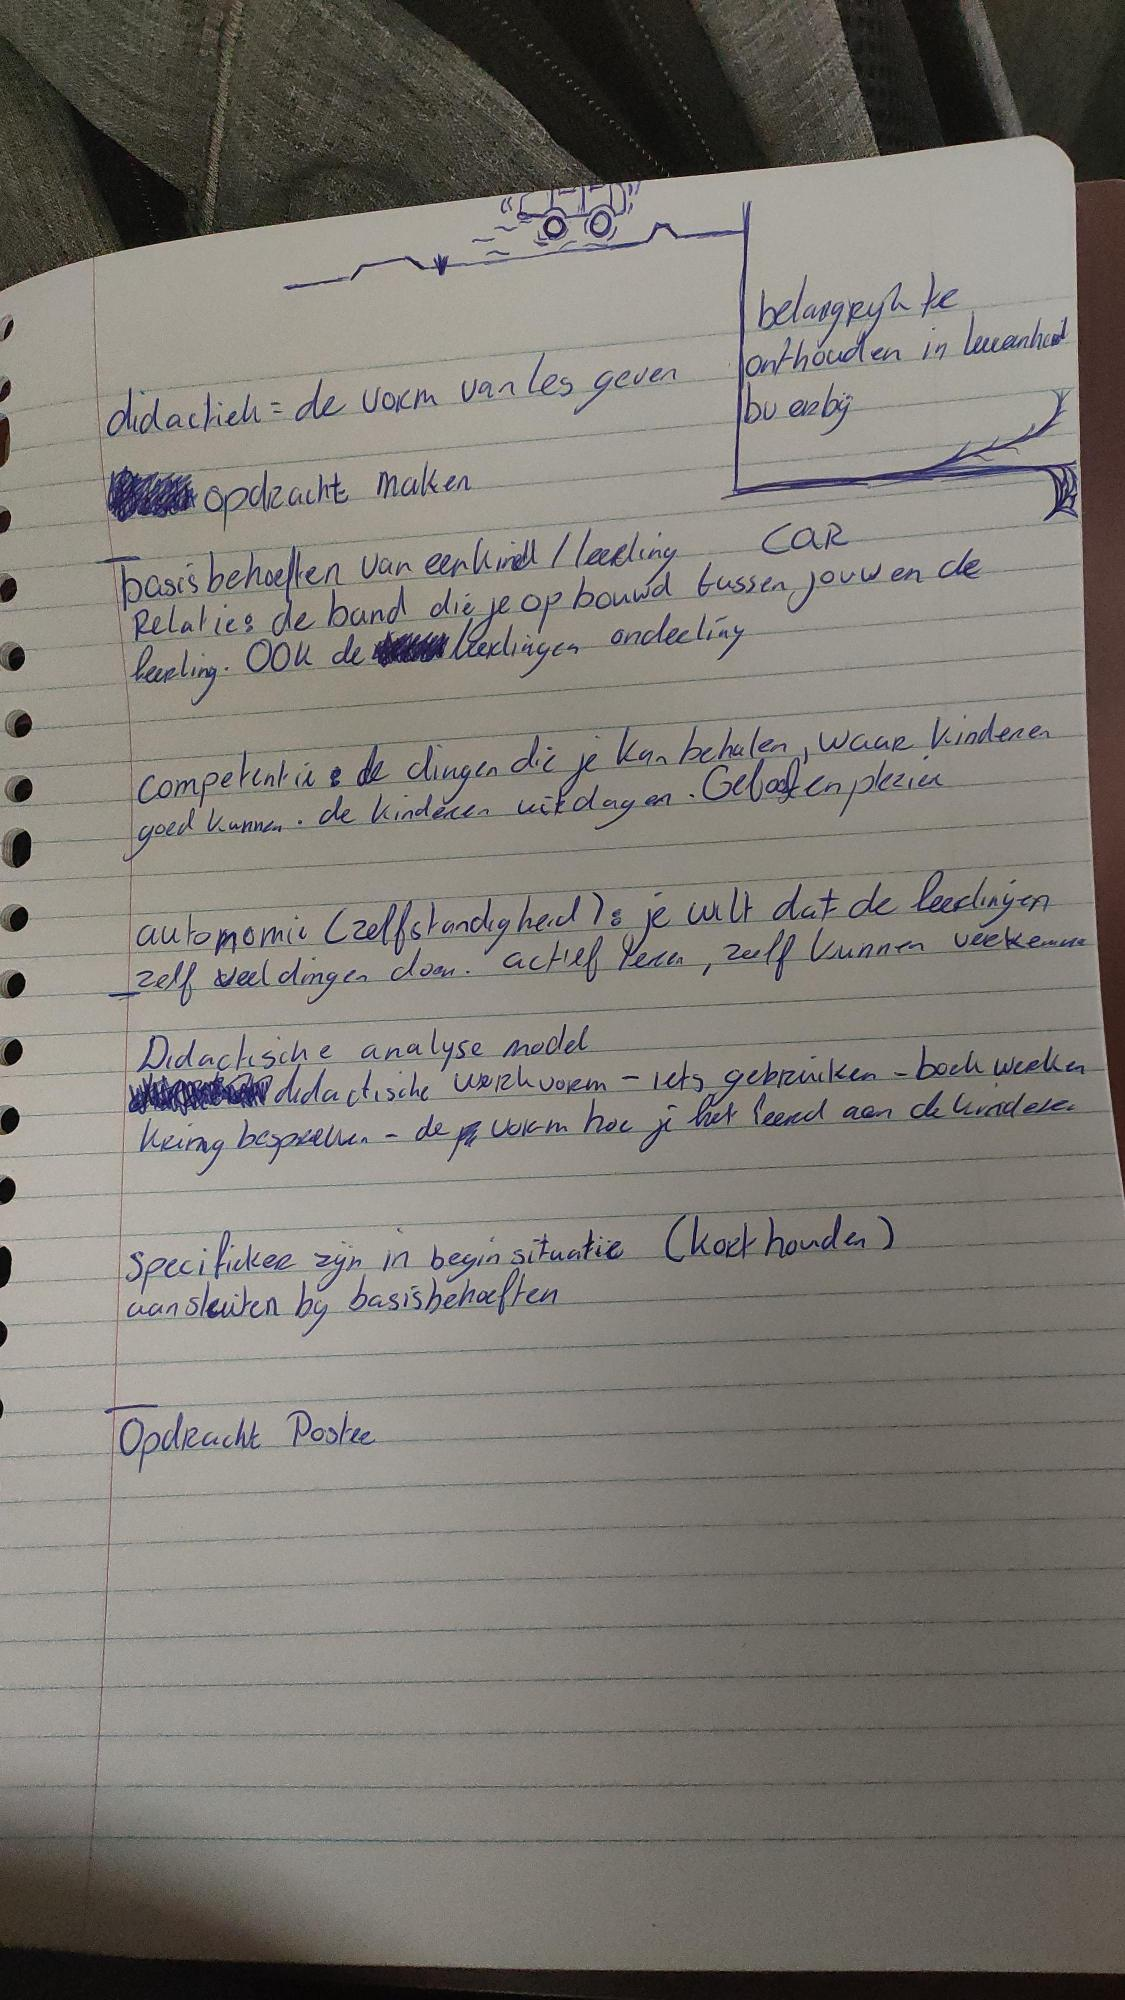 belangrijk te
onthouden in
bv erbij
didactiek = de vorm van les geven
opdracht maken
CAR
basisbehoeften van een kind / leerling
Relatie: de band die je op bouwd tussen jouw en de
leerling. OOk de leerlingen onderling
competentie: de dingen die je kan behalen, waar kinderen
goed kunnen. de kinderen uitdagen. Geloof en plezier
automomie (zelfstandigheid): je wilt dat de leerlingen
zelf veel dingen doen. actief leren, zelf kunnen verkennen
Didactische analyse model
didactische werkvorm - iets gebruiken - boek werken
kring bespreken - de vorm hoe je het leerd aan de kinderen
Specifieker zijn in begin situatie (kort houden)
aansluiten bij basisbehoeften
Opdracht Poster